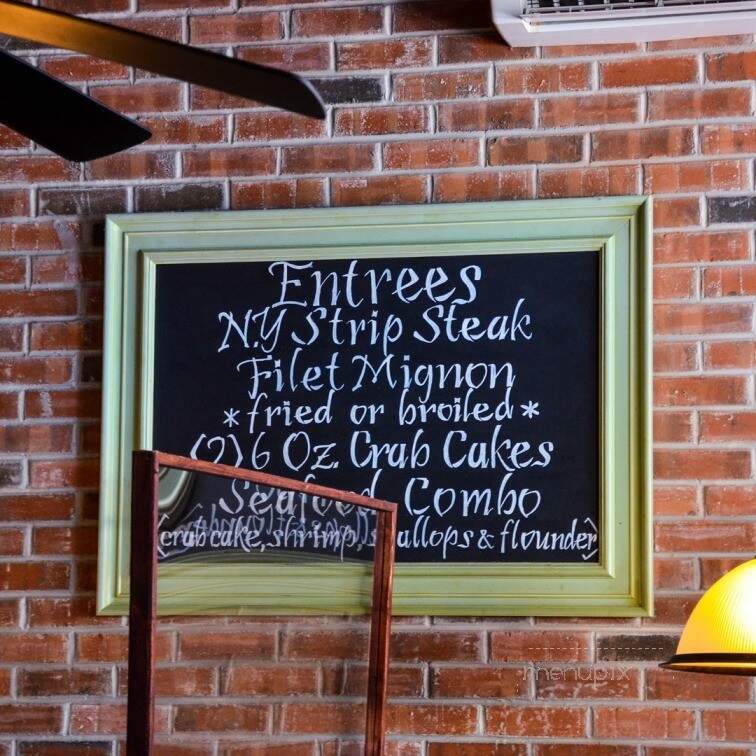 Entrees
N.Y Strip Steak
Filet Mignon
*fried or broiled*
(2) 6 Oz. Crab Cakes
Seafood Combo
[crab cake, shrimp, scallops & flounder]
menupix